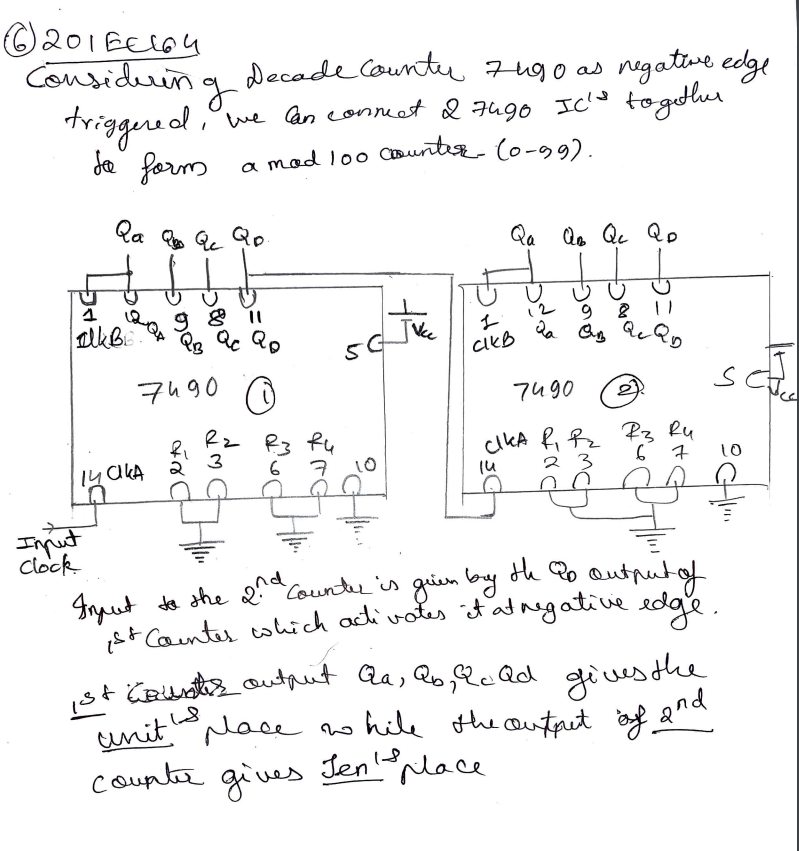 6 201EC164
Considering Decade Counter 7490 as negative edge
triggered, we can connect 2 7490 IC's together
to form a mod 100 counter (0-99).
Qa Qb Qc QD
Qa QB Qc QD
1 12 9 8 11
ClkB QA QB QC QD
5 Vcc
1 12 9 8 11
ClkB Qa QB Qc QD
5 Vcc
7490 1
7490 2
14 ClkA R1 R2 R3 R4
2 3 6 7 10
ClkA R1 R2 R3 R4
14 2 3 6 7 10
Input
Clock
Input to the 2nd Counter is given by the QD output of
1st Counter which activates it at negative edge.
1st Counter output Qa, Qb, Qc Qd gives the
unit's place while the output of 2nd
counter gives Ten's place